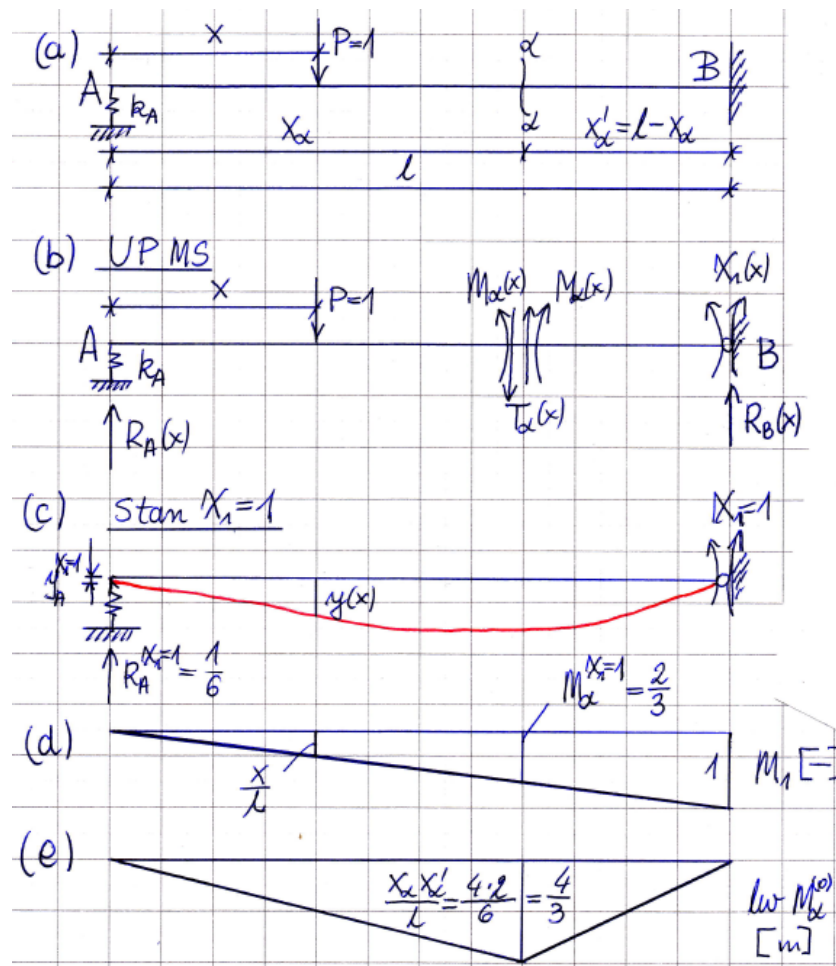 (a) x P=1 α B
A k_A α
x_α x'_α = l - x_α
l
(b) UPMS
x P=1 M_α(x) M_α(x) X₁(x)
A k_A B
R_A(x) T_α(x) R_B(x)
(c) Stan X₁=1 X₁=1
y_A^{X₁=1} y(x)
R_A^{X₁=1} = 1/6 M_α^{X₁=1} = 2/3
(d) x/l 1 M₁ [-]
(e) x_α x'_α / l = 4·2/6 = 4/3 lw M_α^{(0)}
[m]